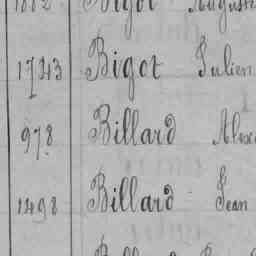 Bigot
1743 Bigot Julien
978 Billard
1498 Billard Jean